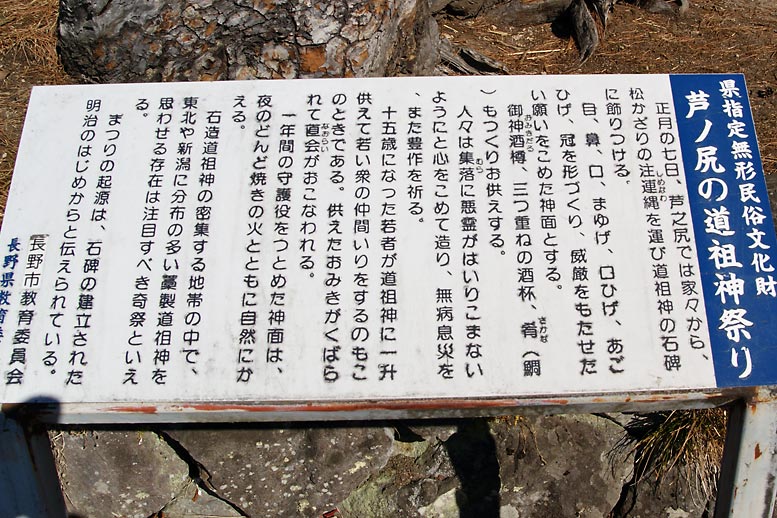 県指定無形民俗文化財
芦ノ尻の道祖神祭り
正月の七日、芦之尻では家々から、
松かざりの注連縄を運び道祖神の石碑
しめなわ
に飾りつける。
目、鼻、口、まゆげ、口ひげ、あご
ひげ、冠を形づくり、威厳をもたせた
い願いをこめた神面とする。
御神酒樽、三つ重ねの酒杯、肴(鯛
おみきだる
さかな
)もつくりお供えする。
人々は集落に悪霊がはいりこまない
むら
ようにと心をこめて造り、無病息災を
、また豊作を祈る。
十五歳になった若者が道祖神に一升
供えて若い衆の仲間いりをするのもこ
のときである。供えたおみきがくばら
れて直会がおこなわれる。
なおらい
一年間の守護役をつとめた神面は、
夜のどんど焼きの火とともに自然にか
える。
石造道祖神の密集する地帯の中で、
東北や新潟に分布の多い藁製道祖神を
思わせる存在は注目すべき奇祭といえ
る。
まつりの起源は、石碑の建立された
明治のはじめからと伝えられている。
長野市教育委員会
長野県教育委